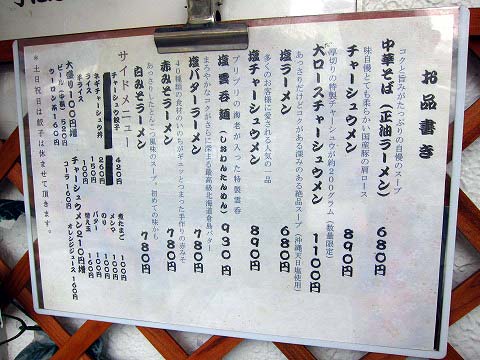 お品書き
コクと旨みがたっぷりの自慢のスープ
中華そば(正油ラーメン) 680円
味自慢とても柔らかい国産豚の肩ロース
チャーシュウメン 890円
厚切りの特製チャーシュウが約200グラム(数量限定)
大ロースチャーシュウメン 1100円
あっさりだけどコクがある深みのある絶品スープ(沖縄天日塩使用)
塩ラーメン 680円
多くのお客様に愛される人気の一品
塩チャーシュウメン 890円
プリプリの海老が入った特製雲呑
塩雲呑麺(しおわんたんめん) 930円
まろやかなコクがさらに深まる最高級北海道会島バター
塩バターラーメン 780円
40種類の食材のいのちがギュッとつまった手作りの赤みそ
赤みそラーメン 780円
あっさりいたとんこつ風味のスープ 初めての味かも
白みそラーメン 780円
サイドメニュー
チャーシュウ餃子 420円
ネギチャーシュウ丼
ライス 150円
半ライス 100円
煮たまご 100円
メンマ 100円
のり 100円
バター 100円
替え玉 160円
大盛り100円増
チャーシュウメン210円増
ビール(中瓶) 520円
コーラ 160円
オレンジジュース 160円
ウーロン茶 160円
*土日祝日は餃子は休ませて頂きます。